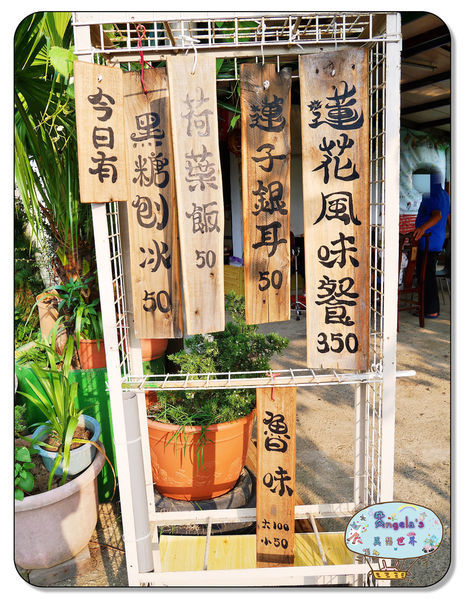 今日有
黑糖刨冰 50
荷葉飯 50
蓮子銀耳 50
蓮花風味餐 350
魯味
大100
小50
Angela's
異想世界